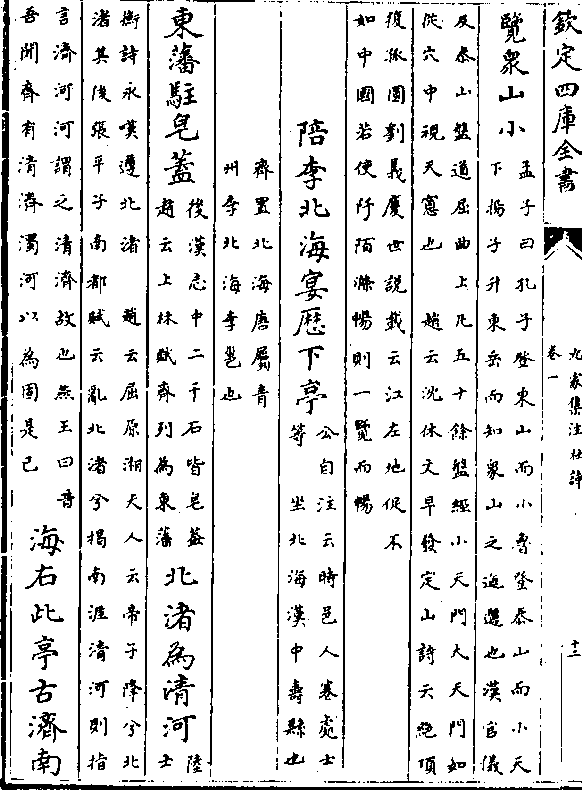 欽定四庫全書
九家集注杜詩
卷一
十二
覽衆山小
孟子曰孔子登東山而小魯登泰山而小天
下揚子升東岳而知衆山之邐迤也漢官儀
及泰山盤道屈曲上凡五十餘盤經小天門大天門如
從穴中視天窻也 趙云沈休文早發定山詩云絶頂
復孤圓劉義慶世說載云江左地促不
如中國若使阡陌滌暢則一覽而暢
陪李北海宴歴下亭
公自注云時邑人蹇處士
等 坐北海漢中壽縣也
齊置北海唐屬青
州李北海李邕也
東藩駐皂蓋
後漢志中二千石皆皂蓋
趙云上林賦齊列為東藩
北渚為清河
陸
士
衡詩永嘆遵北渚 趙云屈原湘夫人云帝子降兮北
渚其後張平子南都賦云亂北渚兮揭南涯清河則指
言濟河河謂之清濟故也燕王曰昔
吾聞齊有清濟濁河以為固是已
海右此亭古濟南